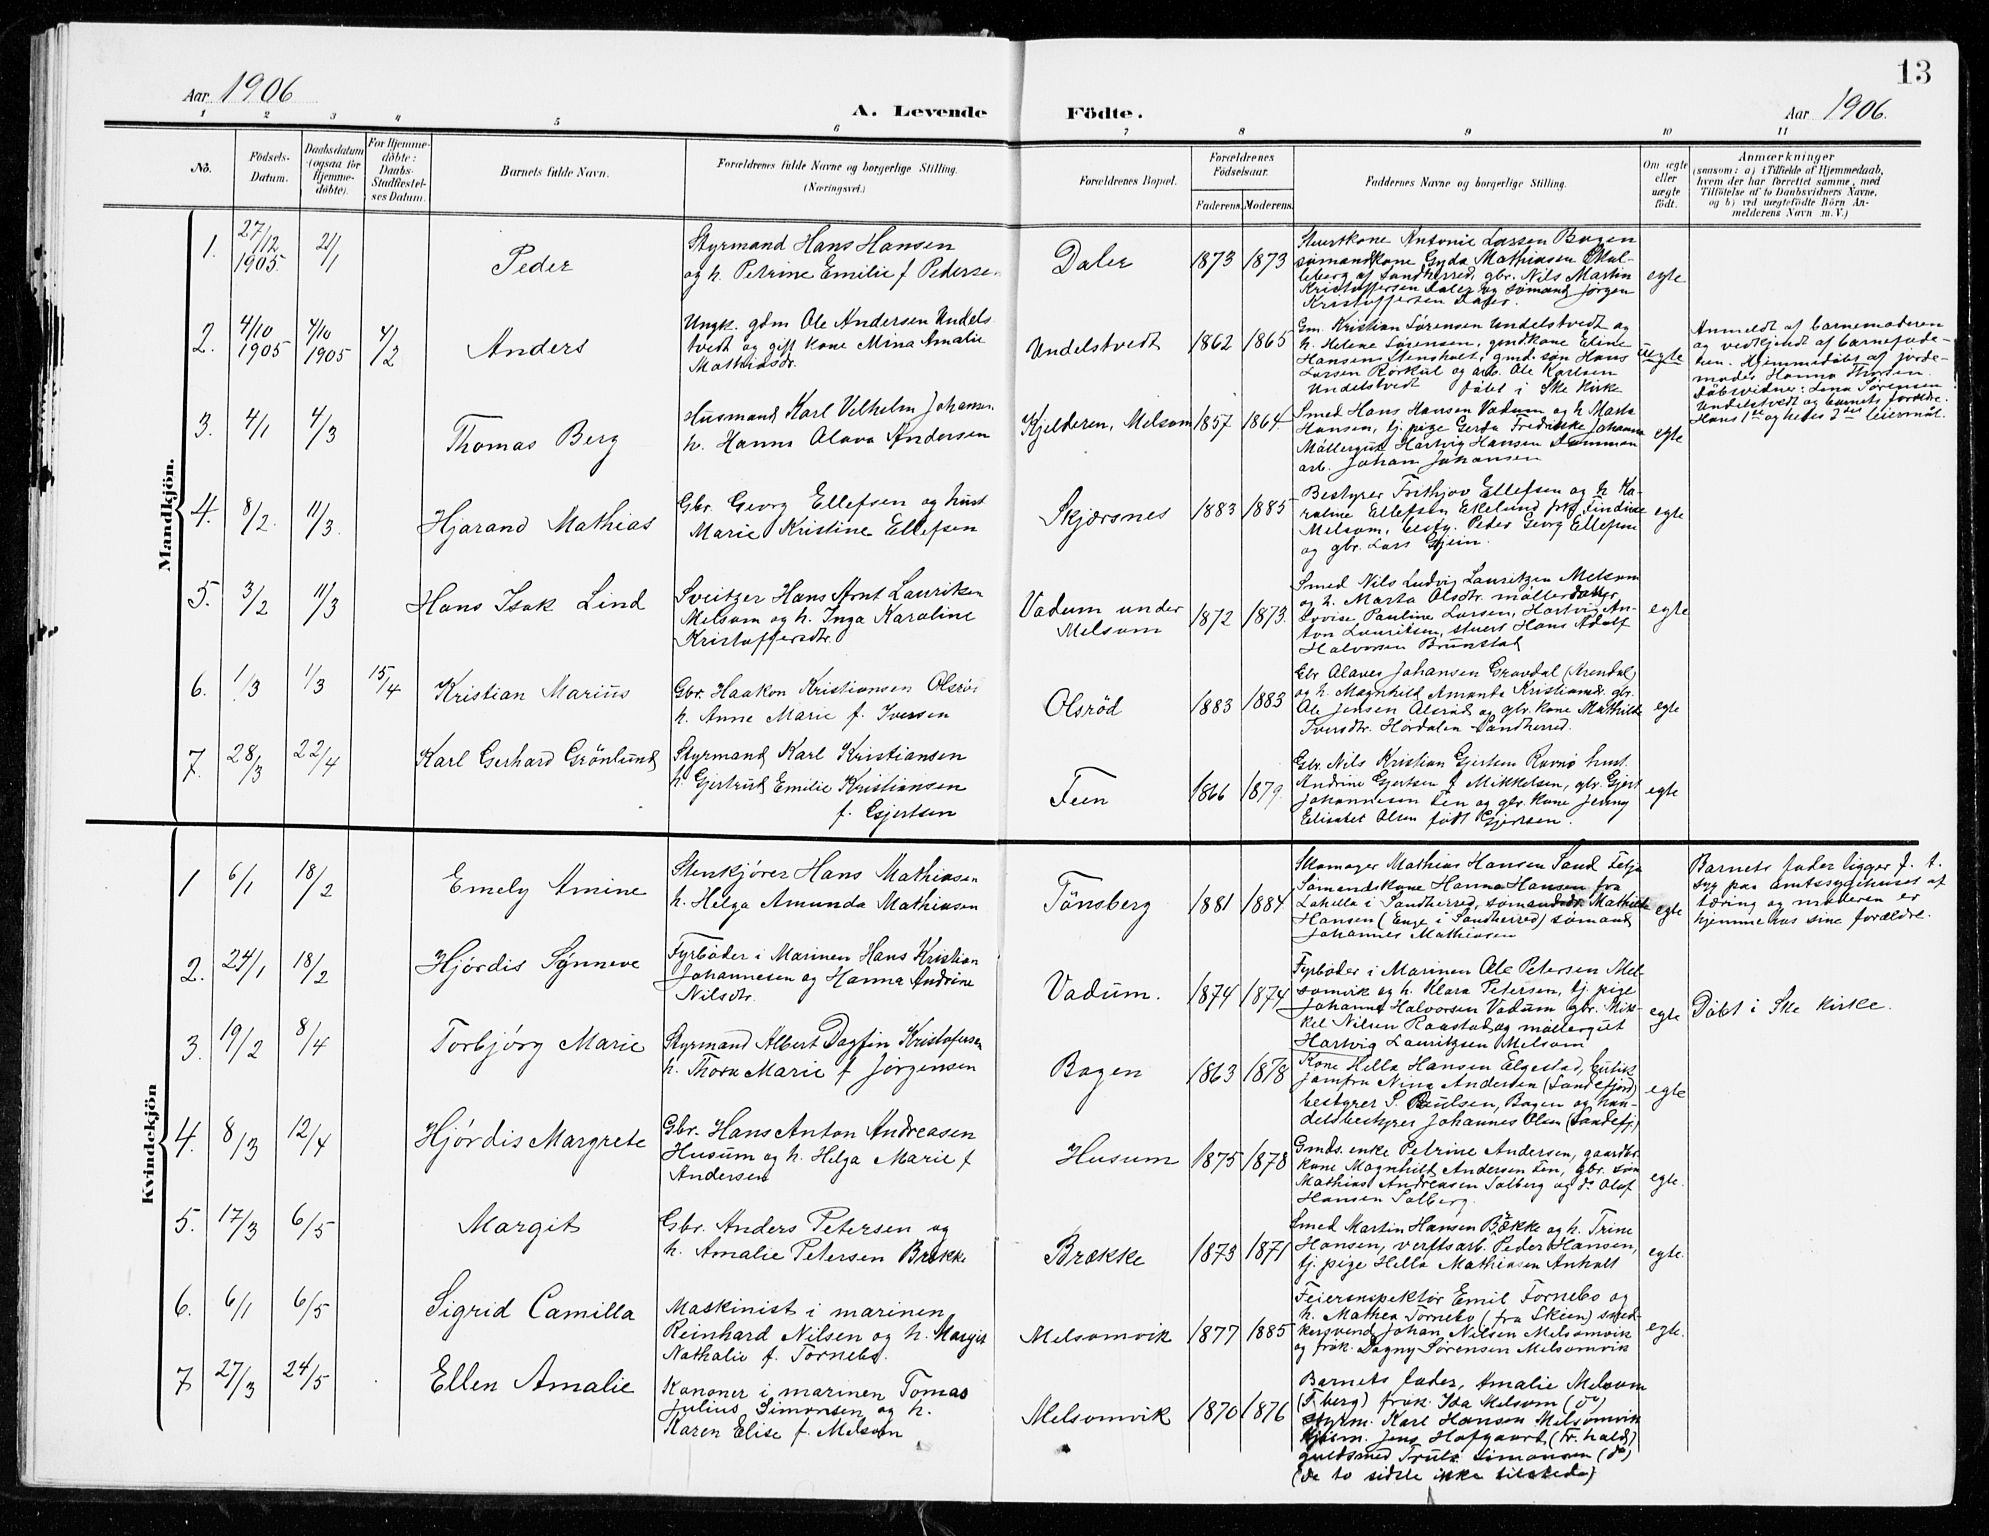 13
Aar 1906
A. Levende Födte.
Aar 1906.
1 2 3 4 5 6 7 8 9 10 11
No.
Födsels-Datum.
Daabsdatum (ogsaa for Hjemme-döbte).
For Hjemme-döbte: Daabs-Stadfæstel-ses Datum.
Barnets fulde Navn.
Forældrenes fulde Navne og borgerlige Stilling. (Næringsvei.)
Forældrenes Bopæl.
Forældrenes Födselsaar.
Faderens. Moderens.
Faddernes Navne og borgerlige Stilling.
Om ægte eller uægte födt.
Anmærkninger
(saasom: a) i Tilfælde af Hjemmedaab,
hvem der har forrettet samme, med
Tilföielse af to Daabsvidners Navne,
og b) ved uægtefödte Börn An-
melderens Navn m. V.)
Mandkjön.
1. 27/12 1905. 21/1 Peder
Styrmand Hans Hansen
og h. Petrine Emilie f Pedersen
Daler 1873 1873
Stuertkone Antonie Larsen Bogen
sømandkone Gyda Mathiasen
af Sandherred, gbr. Nils Martin
Kristoffersen Daler og sømand Jørgen
Kristoffersen Daler.
egte
2. 4/10 1905 4/10 1905 4/2 Anders
Ungk. gdm Ole Andersen Undels
tvedt og gift kone Mina Amalie
Mathiasdr.
Undelstvedt 1862 1865
Gm. Kristian Sørensen Undelstvedt og
h. Helene Sørensen, gmdkone Eline
Hansen Stensholt, gmd. søn Hans
Larsen Rørkul og arb. Ole Karlsen
Undelstvedt døbt i Ske Kirke
uegte
Anmeldt af barnemoderen
og vedkjendt af barnefade-
ren. Hjemmedøbt af jorde-
moder Hanna Thorsen.
Døbsvidner: Lina Sørensen
Undelstvedt og barnets forældre.
Hans 1ste og hendes 2det leiermål.
3. 4/1 4/3 Thomas Berg
Husmand Karl Vilhelm Johansen
h. Hanna Olava Andersen
Kjelderen, Melsom 1857 1864
Smed Hans Hansen Vadum og h. Marta
Hansen, tj. pige Gerda Fredrikke Johanna
Møllergut Hartvig Hansen
arb. Johan Johansen
egte
4. 8/2. 11/3. Hjarand Mathias
Gbr. Georg Ellefsen og hust
Marie Kristine Ellefsen
Skjærsnes 1883 1885
Bestyrer Frithjov Ellefsen og h Ka-
roline Ellefsen Ekelund frk Findine
Melsom, besty. Peder Georg Ellefsen
og gbr. Lars Gjein.
egte
5. 3/2 11/3 Hans Isak Lind
Sveitzer Hans Arnt Lauritsen
Melsom og h. Inga Karoline
Kristoffersdtr.
Vadum under Melsom 1872 1873.
Smed Nils Ludvig Lauritzen Melsom
og h. Marta Olsdtr. mølledatter
Lovise Pauline Larsen, Hartvig An-
ton Lauritsen, stuert Hans Adolf
Halvorsen Brunstad
egte
6. 1/3 1/3 15/4 Kristian Marius
Gbr. Haakon Kristiansen Olsrød
h. Anne Marie f. Iversen
Olsrød 1883 1883
Gbr Olaves Johansen Gravdal (Arendal)
og h. Magnhild Amanta Kristiansdr. gbr.
Ole Jensen Olsrød og gbr. kone Mathilde
Iversdtr. Hørdalen Sandherred.
egte
7. 28/3 22/4 Karl Gerhard Grönlund
Styrmand Karl Kristiansen
h. Gjertrud Emilie Kristiansen
f. Gjertsen
Feen 1866 1879.
Gbr. Nils Kristian Gjertsen Ravnø hust.
Andrine Gjertsen f Mikkelsen, gbr. Gjert
Johannesen Fen og gbr. kone Jenny
Elisabet Olsen født Gjertsen.
egte
Kvindekjön
1 6/1 18/2 Emely Amine
Stenkjører Hans Mathiasen
h. Helga Amunda Mathiasen
Tönsberg 1881 1884
Skomager Mathias Hansen Sand
Sømandskone Hanna Hansen fra
Lahella i Sandherred, sømandsdr. Mathilde
Hansen (Enge i Sandherred) sømand
Johannes Mathiasen
egte
Barnets fader ligger f. t.
syg paa amtssygehuset af
tæring og moderen er
hjemme hos sine forældre.
2. 24/1 18/2 Hjørdis Synneve
Fyrbøder i Marinen Hans Kristian
Johannesen og Hanna Andrine
Nilsdtr.
Vadum. 1874 1874
Fyrbøder i Marinen Ole Petersen Mel-
somvik og h. Klara Petersen, tj. pige
Johanne Halvorsen Vadum gbr. Mik-
kel Nilsen Raastad og møllergut
Hartvig Lauritzsen Melsom
egte
Døbt i Ske kirke.
3. 19/2 8/4 Torbjørg Marie
Styrmand Albert Dagfin Kristofersen
h. Thora Marie f Jørgensen
Bogen 1863 1878
Kone Hella Hansen Elgestad, butik
jomfru Nina Andersen (Sandefjord)
bestyrer S. Paulsen, Bogen og han-
delsbestyrer Johannes Olsen (Sandefj.)
egte
4. 8/3 12/4 Hjørdis Margrete
Gbr. Hans Anton Andreasen
Husum og h. Helga Marie f
Andersen
Husum 1875 1878
Gmds. enke Petrine Andersen, gaardbr.
kone Magnhild Andersen Fen, gbr. søn
Mathias Andreasen Solberg og do Olaf
Hansen Solberg.
egte.
5. 17/3 6/5 Margit
Gbr. Anders Petersen og
h. Amalie Petersen Brekke
Brække 1873 1871
Smed Martin Hansen Bække og h. Trine
Hansen, verftsarb. Peder Hansen,
tj. pige Hella Mathiasen Anholt
egte.
6. 6/1 6/5 Sigrid Camilla
Maskinist i marinen
Reinhard Nilsen og h. Margit
Nathalie f. Tornebo.
Melsomvik 1877 1885
Feierinspektør Emil Tornebo og
h. Mathea Tornebo (fra Skien) smed-
kersvend Johan Nilsen Melsomvik
og frøk. Dagny Sørensen Melsomvik
egte.
7 27/3 24/5 Ellen Amalie
Kanoner i marinen Tomas
Julius Simonsen og h.
Karen Elise f. Melsom
Melsomvik 1870 1876
Barnets fader, Amalie Melsom
(T.berg) frøk. Ida Melsom (do)
styrm. Karl Hansen Melsomvik
Jens Hofgaart (Fr.hald)
guldsmed Truls Simonsen (do)
(de to sidste ikke tilstede)